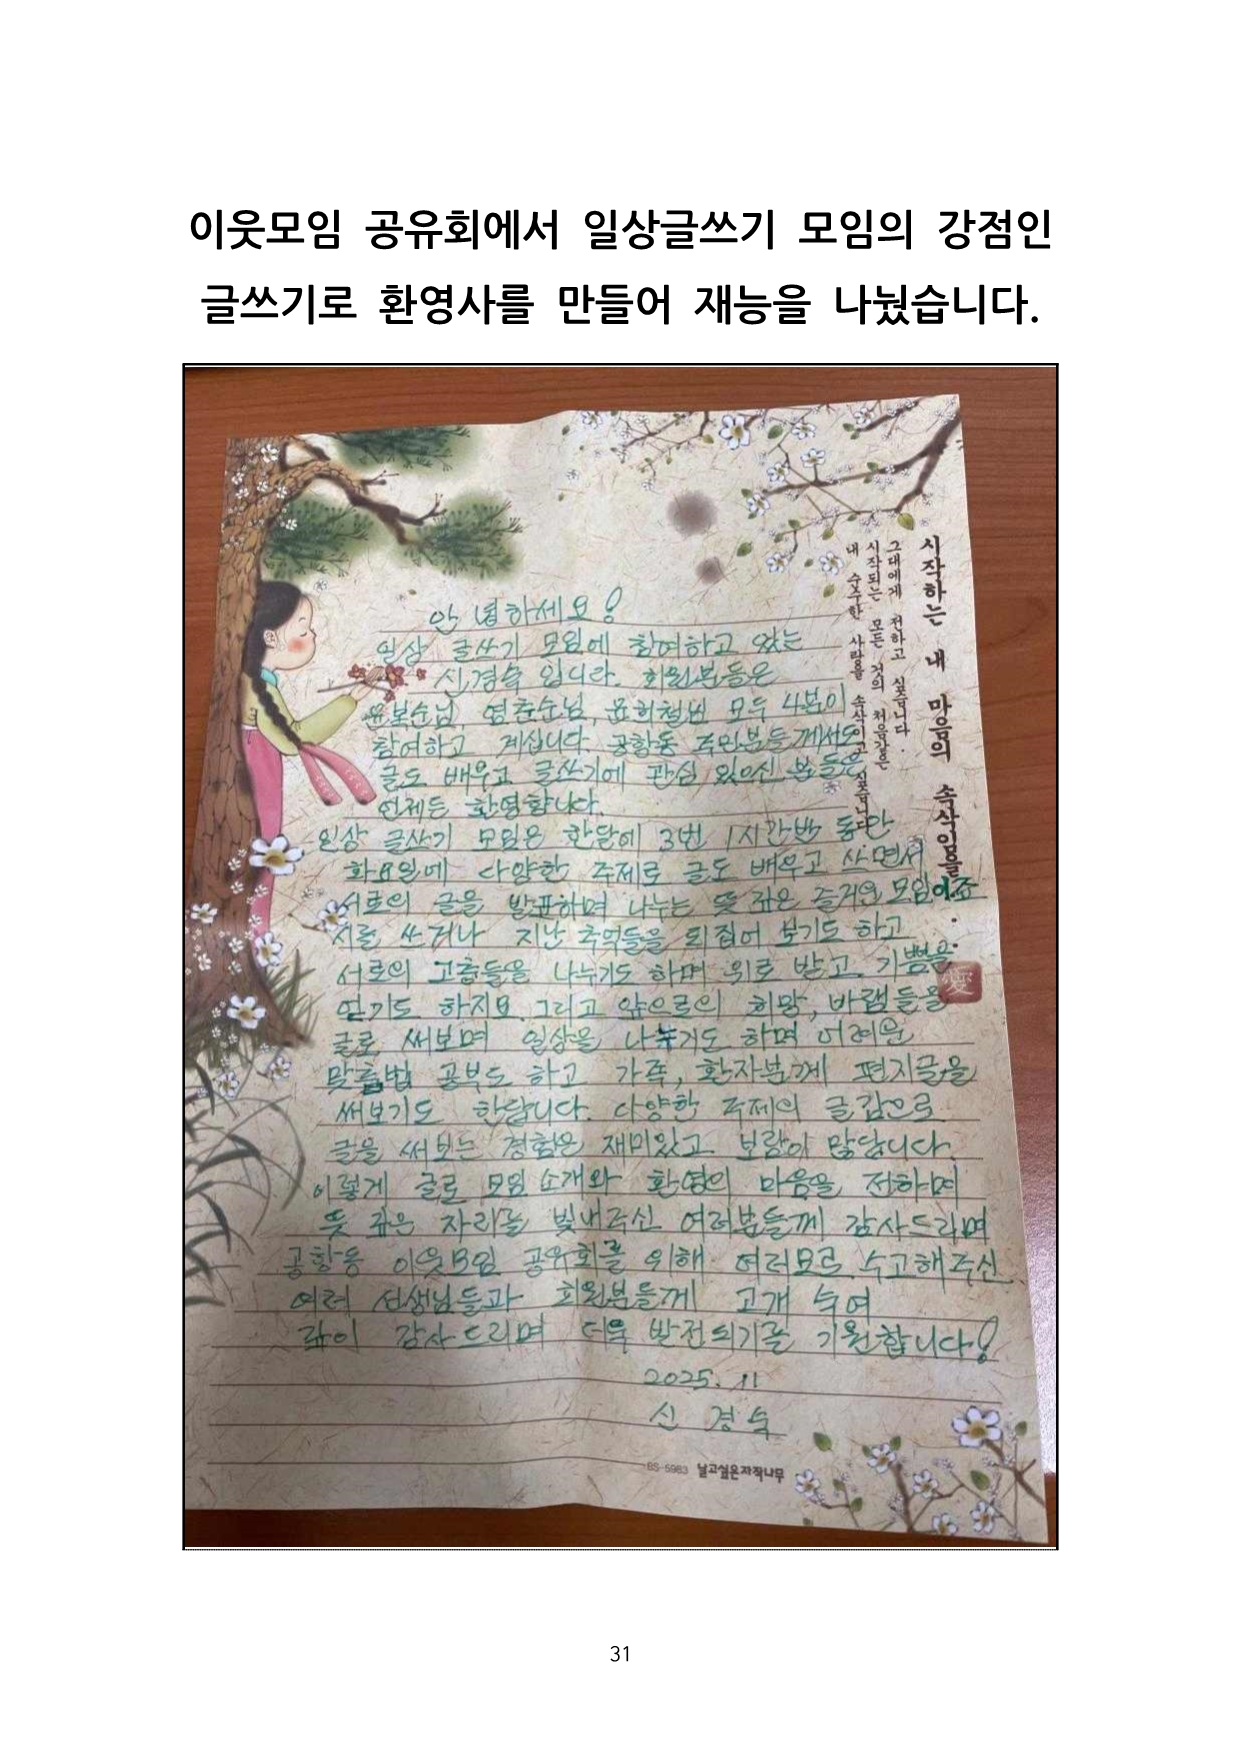 이웃모임 공유회에서 일상글쓰기 모임의 강점인
글쓰기로 환영사를 만들어 재능을 나눴습니다.
시작하는 내 마음의 속삭임을
그대에게 전하고 싶습니다.
시작되는 모든 것의 처음같은
내 순수한 사랑을 속삭이고 싶습니다
안녕하세요!
일상 글쓰기 모임에 참여하고 있는
신경숙 입니다. 회원분들은
윤보순님, 염춘순님, 윤희철님 모두 4분이
참여하고 계십니다. 공항동 주민분들께서도
글도 배우고 글쓰기에 관심 있으신 분들은
언제든 환영합니다.
일상 글쓰기 모임은 한달에 3번 1시간반 동안
화요일에 다양한 주제로 글도 배우고 쓰면서
서로의 글을 발표하며 나누는 뜻 깊은 즐거운 모임이죠
시를 쓰거나 지난 추억들을 되집어 보기도 하고
서로의 고충들을 나누기도 하며 위로 받고 기쁨을
얻기도 하지요. 그리고 앞으로의 희망, 바램들을
글로 써보며 일상을 나누기도 하며 어려운
맞춤법 공부도 하고 가족, 환자분께 편지글을
써보기도 한답니다. 다양한 주제의 글감으로
글을 써보는 경험은 재미있고 보람이 많답니다.
이렇게 글로 모임 소개와 환영의 마음을 전하며
뜻 깊은 자리를 빛내주신 여러분들께 감사드리며
공항동 이웃모임 공유회를 위해 여러모로 수고해주신
여러 선생님들과 회원분들께 고개 숙여
깊이 감사드리며 더욱 발전되기를 기원합니다!
2025. 11
신경숙
BS-5983 날고싶은자작나무
31